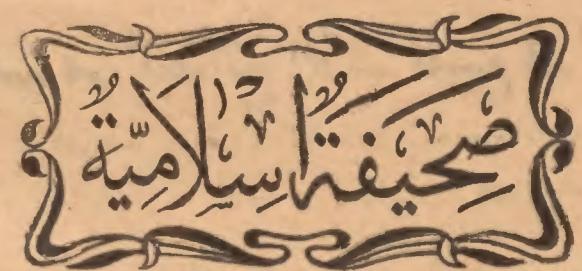 صَحِيفَةُ اِسْلَامِيَّةُ